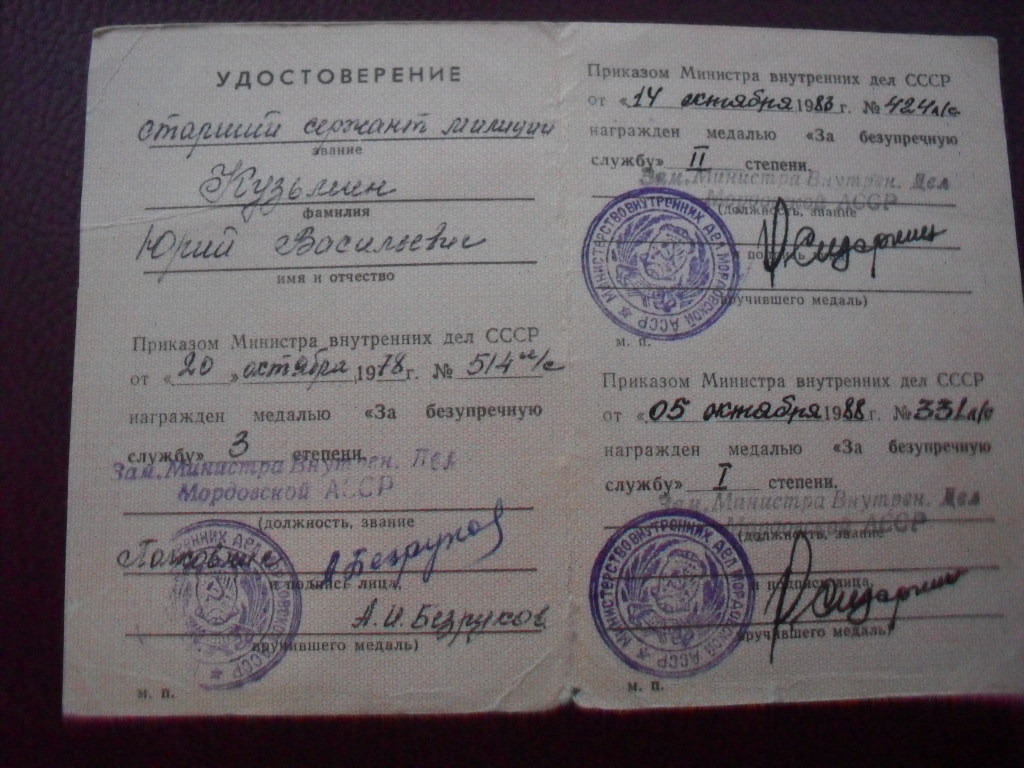 УДОСТОВЕРЕНИЕ
старший сержант милиции
звание
Кузьмин
фамилия
Юрий Васильевич
имя и отчество
Приказом Министра внутренних дел СССР
от «20» октября 1978 г. № 514 л/с
награжден медалью «За безупречную
службу» 3 степени.
Зам. Министра Внутрен. Дел
Мордовской АССР
(должность, звание
Полковник А Безруков
и подпись лица,
А.И. Безруков
вручившего медаль)
м. п.
Приказом Министра внутренних дел СССР
от «14 октября 1983 г. № 424 л/с
награжден медалью «За безупречную
службу» II степени.
Зам. Министра Внутрен. Дел
Мордовской АССР
(должность, звание
МИНИСТЕРСТВО ВНУТРЕННИХ ДЕЛ МОРДОВСКОЙ АССР
вручившего медаль)
м. п.
Приказом Министра внутренних дел СССР
от «05 октября 1988 г. № 331 л/с
награжден медалью «За безупречную
службу» I степени.
Зам. Министра Внутрен. Дел
Мордовской АССР
(должность, звание
МИНИСТЕРСТВО ВНУТРЕННИХ ДЕЛ МОРДОВСКОЙ АССР
и подпись лица,
вручившего медаль)
м. п.